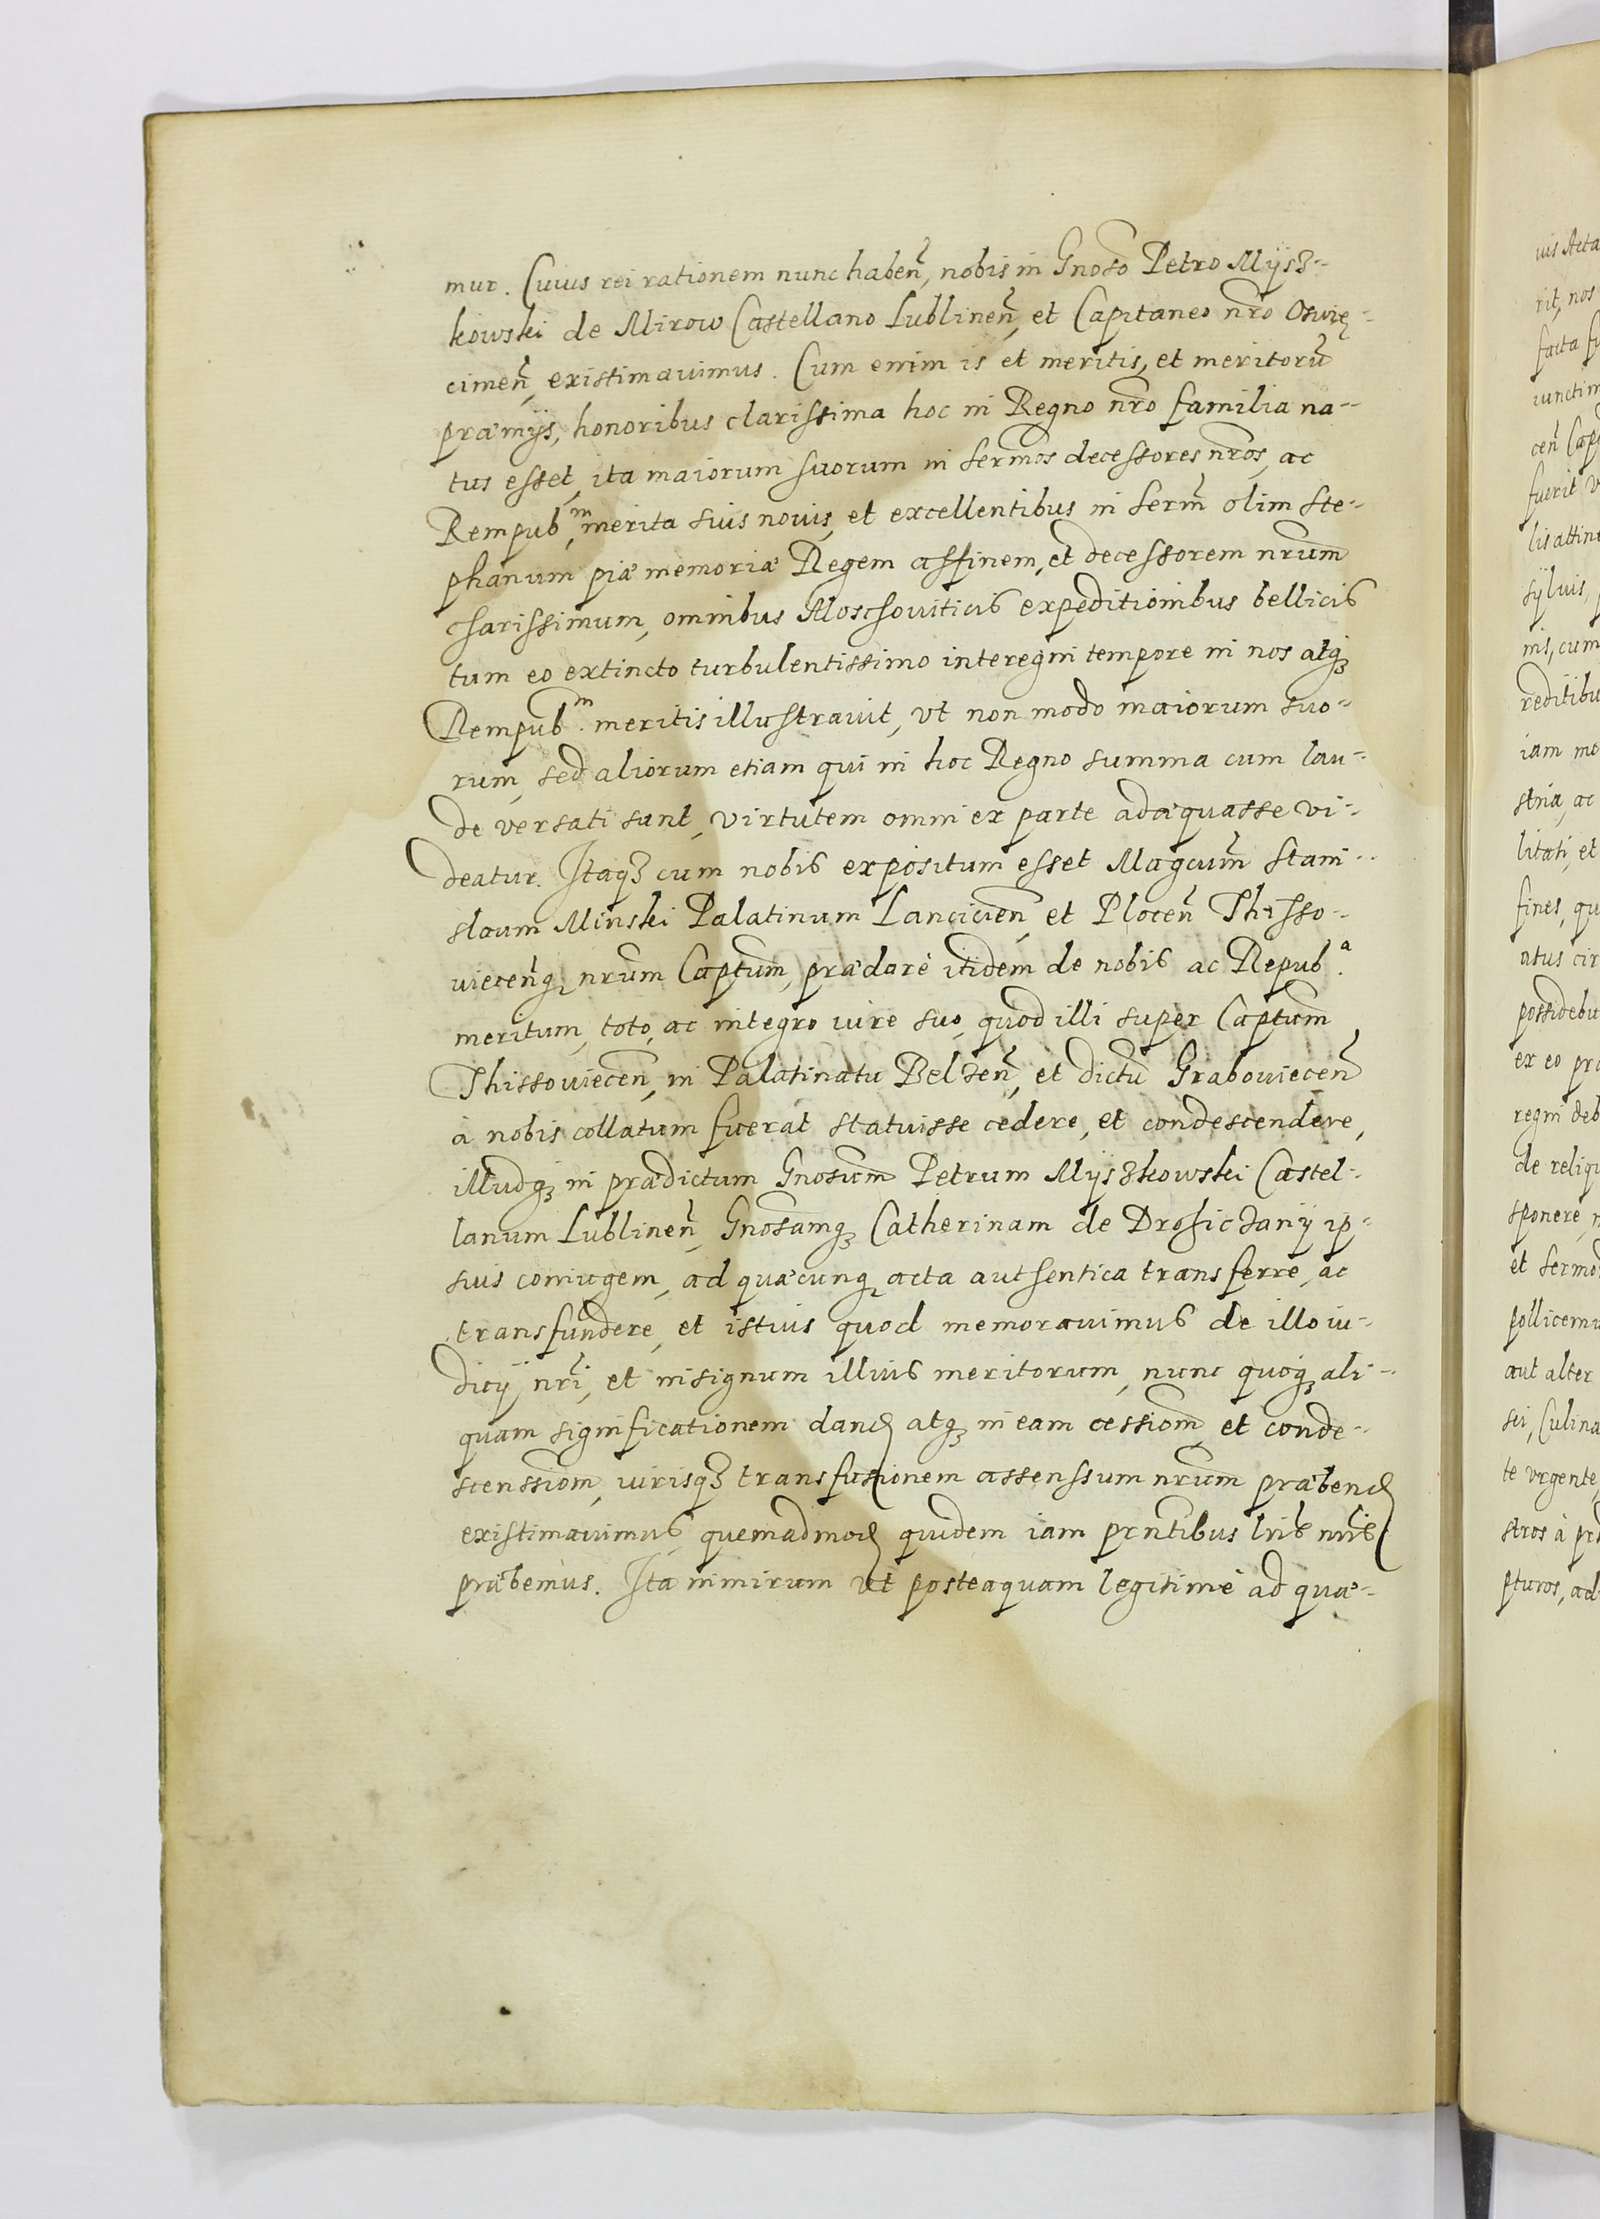 mur. Cuius rei rationem nunc haben̄, nobis in Gnoso Petro Mÿsz-
kowski de Mirow Castellano Lublinen̄, et Capitaneo nr̄o Oswię-
cimen̄, existimauimus. Cum enim is et meritis, et meritorū
præmÿs, honoribus clarissima hoc in Regno nr̄o familia na-
tus esset, ita maiorum suorum in serm̄os decessores nr̄os, ac
Rempub.ᵐ merita suis nouis, et excellentibus in serm̄ olim Ste-
phanum piæ memoriæ Regem affinem, et decessorem nr̄um
charissimum, omnibus Moschouiticis expeditionibus bellicis
tum eo extincto turbulentissimo interegni tempore in nos atqꝫ
Rempub.ᵐ meritis illustrauit, vt non modo maiorum suo-
rum, sed aliorum etiam qui in hoc Regno summa cum lau-
de versati sunt, virtutem omni ex parte adæquasse vi-
deatur. Itaqꝫ cum nobis expositum esset Magcum̄ Stani-
slaum Minski Palatinum Lancicien̄, et Plocen̄ Thisso-
uiecen̄qꝫ nr̄um Capt̄um, præclarè itidem de nobis ac Repub.ᵃ
meritum, toto, ac integro iure suo, quod illi super Capt̄um
Thissouiecen̄, in Palatinatu Belzen̄, et dictū Grabouiecen̄
à nobis collatum fuerat statuisse cedere, et condescendere,
illudqꝫ in prædictum Gnosum̄ Petrum Mÿszkowski Castel-
lanum Lublinen̄, Gnosam̄qꝫ Catherinam de Drohiczany ip-
sius coniugem, ad quæcunqꝫ acta authentica transferre, ac
transfundere, et istius quod memorauimus de illo iu-
dicÿ nr̄i, et insignum illius meritorum, nunc quoqꝫ ali-
quam significationem dand atqꝫ in eam cession̄m, et conde-
scenssion̄m, iurisqꝫ transfusionem assenssum nr̄um præbend
existimauimus, quemadmod quidem iam prn̄tibus lr̄is nr̄is
præbemus. Ita nimirum vt posteaquam legitimè ad quæ-